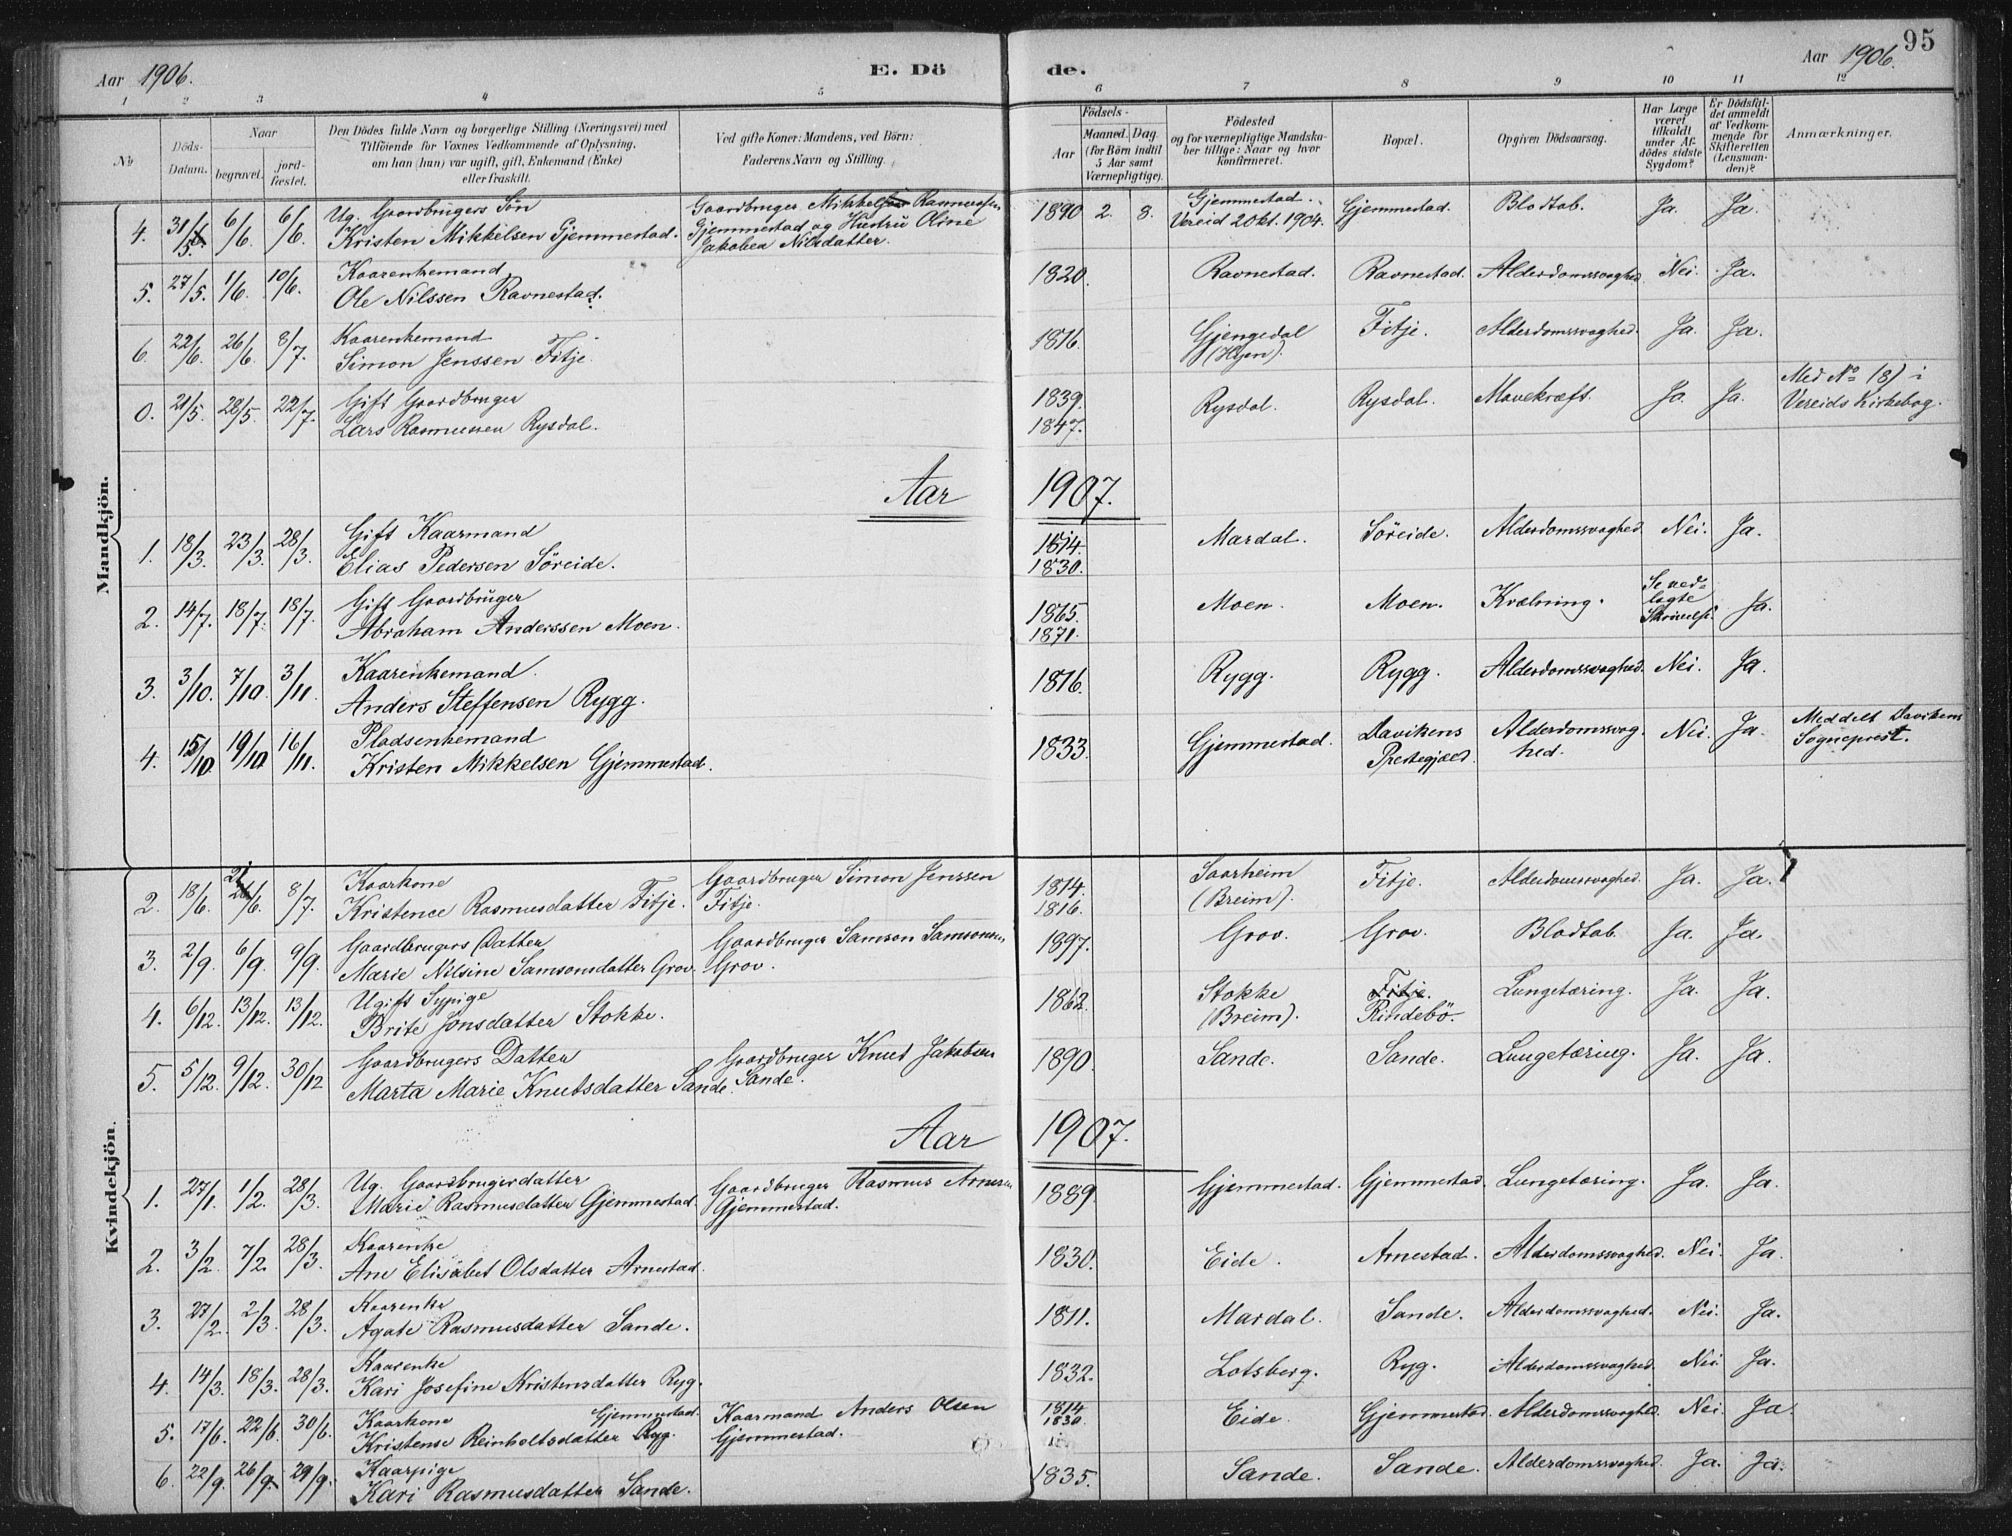 95
Aar 1906.
E. Döde.
Aar 1906.
1 2 3 4 5 6 7 8 9 10 11 12
No
Döds-Datum.
Naar
begravet.
jord-fæstet.
Den Dödes fulde Navn og borgerlige Stilling (Næringsvei) med
Tilföiende for Voxnes Vedkommende af Oplysning,
om han (hun) var ugift, gift, Enkemand (Enke)
eller fraskilt.
Ved gifte Koner: Mandens, ved Börn:
Faderens Navn og Stilling.
Födsels-
Aar
Maaned. Dag.
(for Börn indtil
5 Aar samt
Værnepligtige).
Födested
og for værnepligtige Mandska-
ber tillige: Naar og hvor
konfirmeret.
Bopæl.
Opgiven Dödsaarsag.
Har Læge
været
tilkaldt
under Af-
dödes sidste
Sygdom?
Er Dödsfal-
det anmeldt
af Vedkom-
mende for
Skifteretten
(Lensman-
den)?
Anmærkninger.
Mandkjön.
4. 31/5 6/6. 6/6. Ug. Gaardbrugers Søn Gaardbruger Mikkel Rasmussen 1890 2. 8. Gjemmestad. Gjemmestad. Blodtab. Ja. Ja.
Kristen Mikkelsen Gjemmestad. Gjemmestad og Hustru Oline Vereid 2 Okt. 1904.
Jakobea Nilsdatter.
5. 27/5. 1/6. 10/6. Kaarenkemand 1820. Ravnestad. Ravnestad. Alderdomssvaghed. Nei. Ja.
Ole Nilssen Ravnestad.
6. 22/6. 26/6. 8/7. Kaarenkemand 1816. Gjengedal Fitje. Alderdomssvaghed. Ja. Ja.
Simon Jenssen Fitje. (Hyen).
0. 21/5. 28/5. 22/7. Gift Gaardbruger 1839. Rysdal. Rysdal. Mavekræft. Ja. Ja. Med No 18 i
Lars Rasmussen Rysdal. 1847. Vereids Kirkebog.
Aar 1907.
1. 18/3. 23/3. 28/3. Gift Kaarmand 1814. Mardal. Søreide. Alderdomssvaghed. Nei. Ja.
Elias Pedersen Søreide. 1830.
2. 14/7. 18/7. 18/7. Gift Gaardbruger 1865. Moen. Moen. Kvælning. Se ved-
lagte Ja.
Abraham Anderssen Moen. 1871.
3. 3/10. 7/10. 3/11. Kaarenkemand. 1816. Rygg. Rygg. Alderdomssvaghed. Nei. Ja.
Anders Steffensen Rygg.
4. 15/10. 19/10. 16/11. Pladsenkemand 1833. Gjemmestad. Davikens Alderdomssvag Nei. Ja. Meddelt Davikens
Kristen Mikkelsen Gjemmestad. Prestegjæld. hed. Sogneprest.
Kvindekjön.
2. 18/6. 21/6. 8/7. Kaarkone Gaardbruger Simon Jenssen 1814. Saarheim Fitje. Alderdomssvaghed. Ja. Ja.
Kristence Rasmusdatter Fitje. Fitje. 1816. (Breim).
3. 2/9. 6/9. 9/9. Gaardbrugers Datter Gaardbruger Samson Samsonsen 1897. Grov. Grov. Blodtab. Ja. Ja.
Marie Nilsine Samsonsdatter Grov. Grov.
4. 6/12. 13/12. 13/12. Ugift Sypige 1862. Stokke Fitje. Lungetæring. Ja. Ja.
Brite Jonsdatter Stokke. (Breim). Rindebö.
5. 5/12. 9/12. 30/12 Gaardbrugers Datter Gaardbruger Knut Jakobsen 1890. Sande. Sande. Lungetæring. Ja. Ja.
Marta Marie Knutsdatter Sande. Sande.
Aar 1907.
1. 27/1. 1/2. 28/3. Ug. Gaardbrugerdatter Gaardbruger Rasmus Arnesen 1889. Gjemmestad. Gjemmestad. Lungetæring. Ja. Ja.
Marie Rasmusdatter Gjemmestad. Gjemmestad.
2. 3/2. 7/2. 28/3. Kaarenke 1830. Eide. Arnestad. Alderdomssvaghed. Nei. Ja.
Ane Elisabet Olsdatter Arnestad.
3. 27/2. 2/3. 28/3. Kaarenke 1811. Mardal. Sande. Alderdomssvaghed. Nei. Ja.
Agate Rasmusdatter Sande.
4. 14/3. 18/3. 28/3. Kaarenke 1832. Lotsberg. Ryg. Alderdomssvaghed. Nei. Ja.
Kari Josefine Kristensdatter Ryg.
5. 17/6. 22/6. 30/6. Kaarkone Gjemmestad. Kaarmand Anders Olsen 1814 Eide. Gjemmestad. Alderdomssvaghed. Nei. Ja.
Kristense Reinholtsdatter Ryg. Gjemmestad. 1830.
6. 22/9. 26/9. 29/9. Kaarpige 1835. Sande. Sande. Alderdomssvaghed. Ja. Ja.
Kari Rasmusdatter Sande.